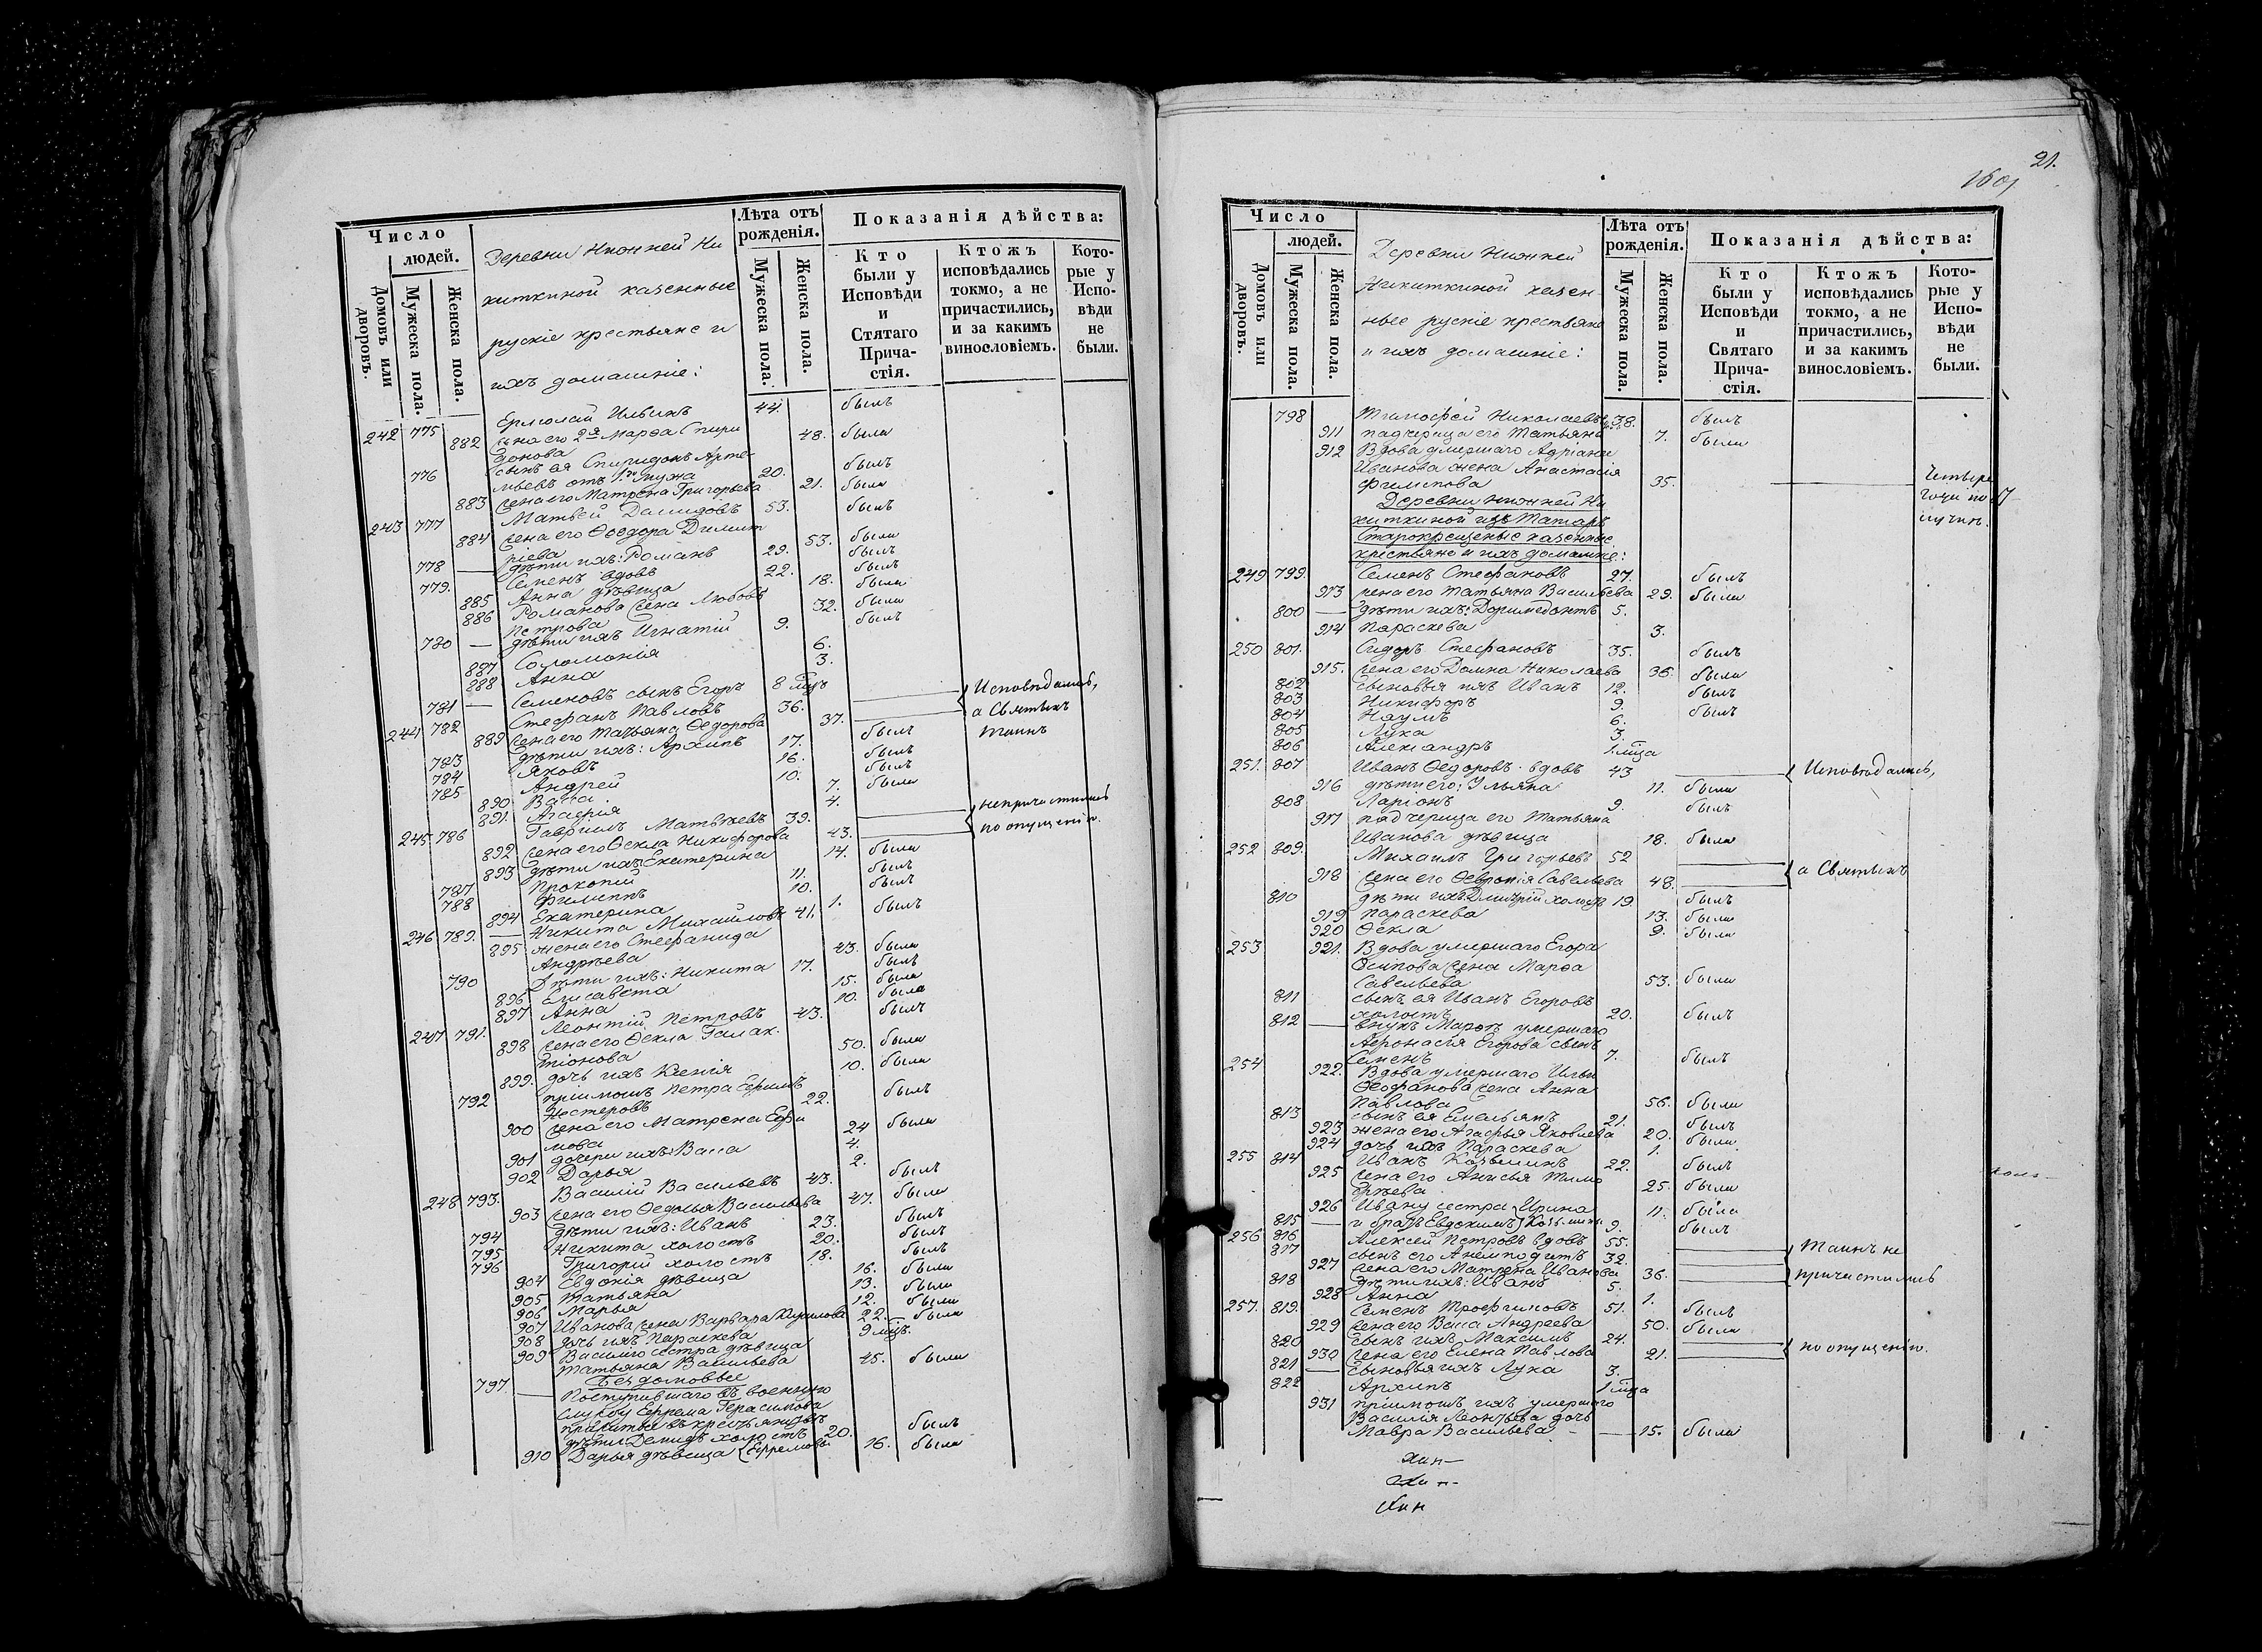 Число
людей.
Домовъ или дворовъ.
Мужеска пола.
Женска пола.
Деревни Нижней Ни
киткиной казенные
руские крестьяне и
ихъ домашніе:
Лѣта отъ
рожденія.
Мужеска пола.
Женска пола.
Показанія дѣйства:
Кто
были у
Исповѣди
и
Стятаго
Прича-
стія.
Ктожъ
исповѣдались
токмо, а не
причастились,
и за какимъ
винословіемъ.
Кото-
рые у
Испо-
вѣди
не
были.
242 775 Ермолай Ильинъ 44. былъ
882 жена его 2я Марѳа Спири 48. была
донова
776 сынъ ея Спиридонъ Арте- 20. былъ
мьевъ отъ 1го мужа
883 жена его Матрена Григорьева 21. была
243 777 Матвей Демидовъ 53. былъ
884 жена его Ѳеодора Димит 53. была
ріева
778 — дѣти ихъ: Романъ 29. былъ
779. Семенъ вдовъ 22. былъ
885 Анна дѣвица 18. была
886 Романова жена Любовь 32. была
Петрова
780 — дѣти ихъ Игнатій 9. былъ
887 Соломонія 6.
888 Анна 3.
781 — Семеновъ сынъ Егоръ 8 мцъ
244 782 Стефанъ Павловъ 36. Исповѣдались,
889 жена его Татьяна Ѳедорова 37. а Святыхъ
783 дѣти ихъ: Архипъ 17. былъ Таинъ
784 Яковъ 16. былъ
785 Андрей 10. былъ
890 Васса 7. была
891. Агафія 4.
245 786 Гавріилъ Матвѣевъ 39. непричастились
892 жена его Ѳекла Никифорова 43. по опущенію.
893 дѣти ихъ Екатерина 14. была
787 Прокопій 11. былъ
788 Филиппъ 10. былъ
894 Екатерина 1.
246 789. — Никита Михайловъ 41. былъ
895 жена его Стефанида 43. была
Андрѣева
790 Дѣти ихъ: Никита 17. былъ
896 Елисавета 15. была
897 Анна 10. была
247 791. Леонтій Петровъ 43. былъ
898 жена его Ѳекла Галак- 50. была
тіонова
899. дочь ихъ Ксенія 10. была
792 пріимышъ Петра Ефимъ 22. былъ
Нестеровъ
900 жена его Матрена Ефи 24 была
мова
901 дочери ихъ: Васса 4.
902 Дарья 2.
248 793. Василій Васильевъ 43. былъ
903 жена его Ѳедосья Васильева 47. была
794 дѣти ихъ: Иванъ 23. былъ
795 Никита холостъ 20. былъ
796 Григорій холостъ 18. былъ
904 Евдокія дѣвица 16. была
905 Татьяна 13. была
906 Марья 12. была
907 Иванова жена Варвара Кирилова 22. была
908 дочь ихъ Параскева 9 мцъ.
909 Василіго сестра дѣвица
Татьяна Васильева 45. была
Бездомовые
797. — Поступившаго въ военную
службу Ефрема Герасимова
дѣти Демидъ холостъ 20. былъ
910 Дарья дѣвица Ефремовы 16. была
21.
1601
Число
людей.
Домовъ или дворовъ.
Мужеска пола.
Женска пола.
Деревни Нижней
Никиткиной казен-
ные руские крестьяне
и ихъ домашніе:
Лѣта отъ
рожденія.
Мужеска пола.
Женска пола.
Показанія дѣйства:
Кто
были у
Исповѣди
и
Святаго
Прича-
стія.
Ктожъ
исповѣдались
токмо, а не
причастились,
и за какимъ
винословіемъ.
Кото-
рые у
Испо-
вѣди
не
были.
798 Тимофей Николаевъ 38. былъ
911 падчерица его Татьяна 7. была
912 Вдова умершаго Адріана
Иванова жена Анастасія
Филипова 35.
Деревни Нижней Ни
киткиной изъ Татаръ
Старокрещеные казенные
крестьяне и ихъ домашніе:
249 799. Семенъ Стефановъ 27. былъ
913 жена его Татьяна Васильева 29. была
800 — дѣти ихъ: Доримедонтъ 5.
914 Параскева 3.
250 801. Сидоръ Стефановъ 35. былъ
915. жена его Домна Николаева 36. была
802 сыновья ихъ Иванъ 12. былъ
803 Никифоръ 9. былъ
804 Наумъ 6.
805 Лука 3.
806 Александръ 1 мца
251. 807 Иванъ Ѳедоровъ вдовъ 43 Исповѣдались,
916 дѣти его: Ульяна 11. была
808 Ларіонъ 9. былъ
917 падчерица его Татьяна
Иванова дѣвица 18. была
252 809. Михаилъ Григорьевъ 52 а Святыхъ
918 жена его Ѳевронія Савельева 48.
810 дѣти ихъ: Дмитрій холостъ 19. былъ
919 Параскева 13. была
920 Ѳекла 9. была
253 921. Вдова умершаго Егора
Осипова жена Марѳа
Савельева 53. была
811 сынъ ея Иванъ Егоровъ
холостъ 20. былъ
812 — внукъ Марѳы умершаго
Афонасія Егорова сынъ
Семенъ 7. былъ
254 922. Вдова умершаго Ильи
Ѳеофанова жена Анна
Павлова 56. была
813 сынъ ея Емельянъ 21. былъ
923 жена его Агафья Яковлева 20. была
924 дочь ихъ Параскева 1.
255 814 Иванъ Козьминъ 22. былъ
925 жена его Анисья Тимо
фѣева 25. была
926 Ивану сестра Ирина 11. была
815 — и братъ Евдокимъ Козьмины 9. былъ
256 816 Алексей Петровъ вдовъ 55. Таинъ не
817 сынъ его Анемподитъ 32.
927 жена его Матрена Иванова 36. причастились
818 дѣти ихъ: Иванъ 5.
928 Анна 1.
257. 819. Семенъ Трофимовъ 51. былъ
929 жена его Васса Андреева 50. была
820 сынъ ихъ Максимъ 24. по опущенію.
930 жена его Елена Павлова 21.
821 — сыновья ихъ Лука 3.
822 Архипъ 1 мца
931 пріимышъ ихъ умершаго
Василія Леонтьева дочь
Мавра Васильева 15. была